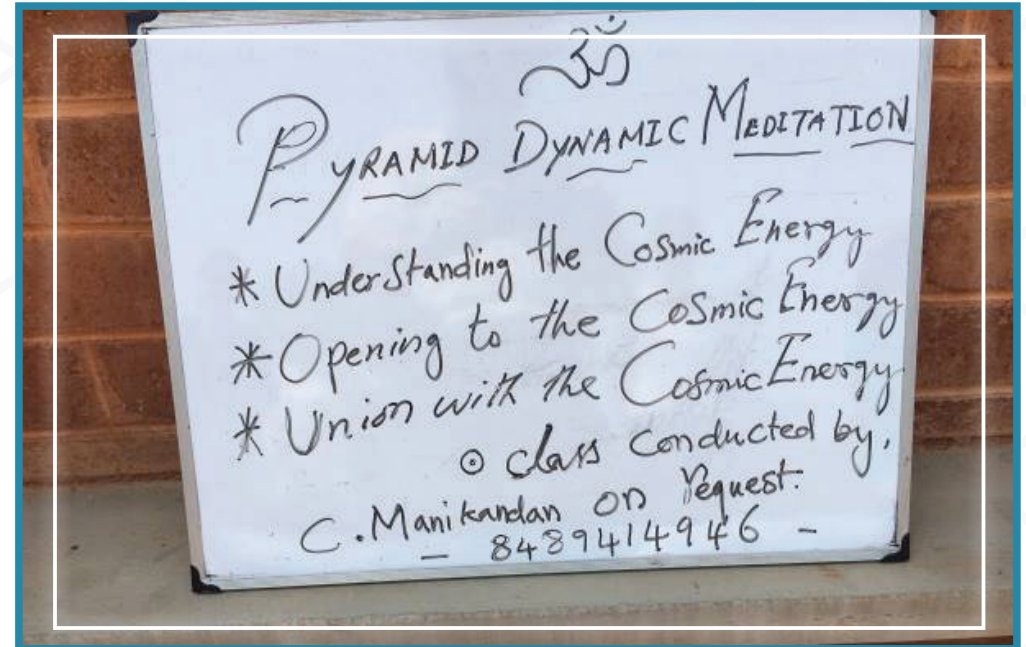 ॐ
PYRAMID DYNAMIC MEDITATION
* Understanding the Cosmic Energy
* Opening to the Cosmic Energy
* Union with the Cosmic Energy
⊙ class conducted by,
C. Manikandan on request.
- 8489414946 -